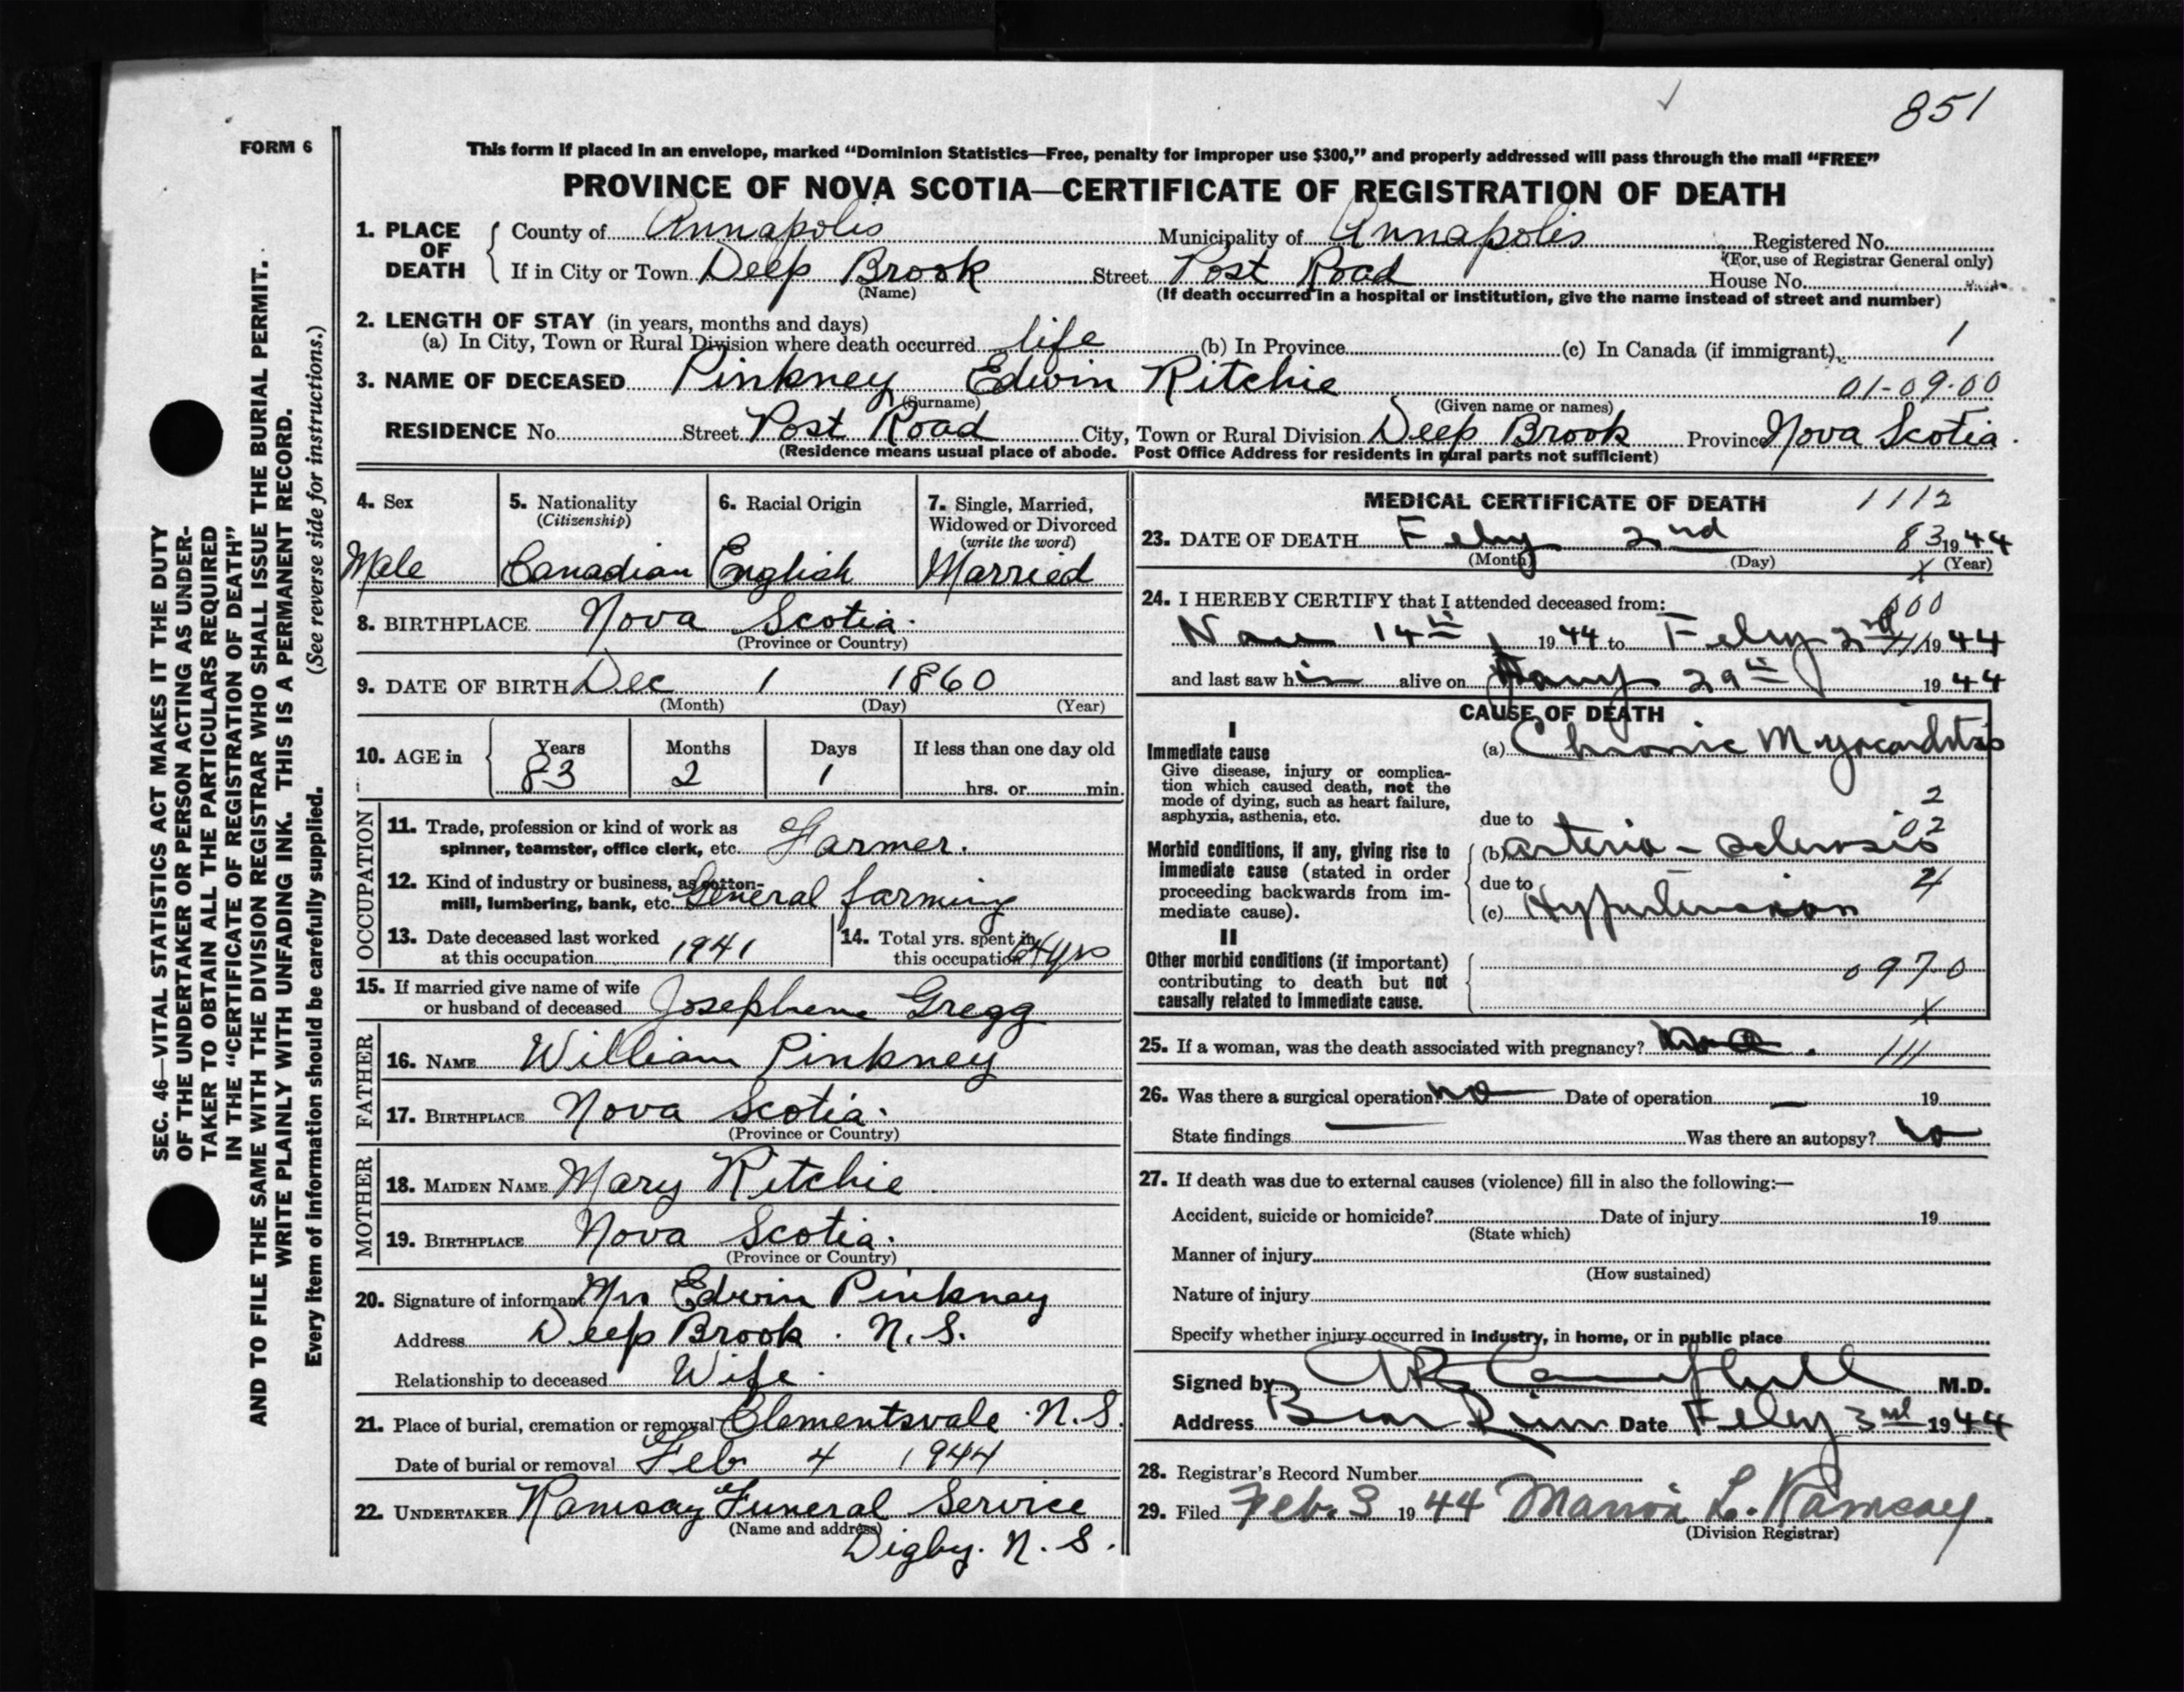 851
FORM 6
This form if placed in an envelope, marked “Dominion Statistics—Free, penalty for improper use $300,” and properly addressed will pass through the mail “FREE”
PROVINCE OF NOVA SCOTIA—CERTIFICATE OF REGISTRATION OF DEATH
1. PLACE OF DEATH County of Annapolis Municipality of Annapolis Registered No.
(For use of Registrar General only)
If in City or Town Deep Brook Street Post Road House No.
(Name) (If death occurred in a hospital or institution, give the name instead of street and number)
2. LENGTH OF STAY (in years, months and days)
(a) In City, Town or Rural Division where death occurred life (b) In Province (c) In Canada (if immigrant) 1
3. NAME OF DECEASED Pinkney Edwin Ritchie 01-09-00
(Surname) (Given name or names)
RESIDENCE No. Street Post Road City, Town or Rural Division Deep Brook Province Nova Scotia.
(Residence means usual place of abode. Post Office Address for residents in rural parts not sufficient)
4. Sex 5. Nationality 6. Racial Origin 7. Single, Married,
(Citizenship) Widowed or Divorced
(write the word)
Male Canadian English Married
8. BIRTHPLACE Nova Scotia.
(Province or Country)
9. DATE OF BIRTH Dec 1 1860
(Month) (Day) (Year)
10. AGE in Years Months Days If less than one day old
83 2 1 hrs. or min.
OCCUPATION
11. Trade, profession or kind of work as
spinner, teamster, office clerk, etc. Farmer.
12. Kind of industry or business, as cotton-
mill, lumbering, bank, etc. General farming
13. Date deceased last worked
at this occupation 1941
14. Total yrs. spent in
this occupation 64 yrs
15. If married give name of wife
or husband of deceased Josephene Gregg
FATHER
16. NAME William Pinkney
17. BIRTHPLACE Nova Scotia.
(Province or Country)
MOTHER
18. MAIDEN NAME Mary Ritchie
19. BIRTHPLACE Nova Scotia.
(Province or Country)
20. Signature of informant Mrs Edwin Pinkney
Address Deep Brook. N.S.
Relationship to deceased Wife.
21. Place of burial, cremation or removal Clementsvale N.S.
Date of burial or removal Feb 4 1944
22. UNDERTAKER Ramsay Funeral Service
(Name and address)
Digby. N.S.
MEDICAL CERTIFICATE OF DEATH 1112
23. DATE OF DEATH Feby 2nd 83 1944
(Month) (Day) (Year)
X
24. I HEREBY CERTIFY that I attended deceased from: 000
14th 1944 to Feby 2nd 1944
and last saw him alive on Jany 29th 1944
CAUSE OF DEATH
I
Immediate cause (a) Chronic Myocarditis
Give disease, injury or complica-
tion which caused death, not the
mode of dying, such as heart failure,
asphyxia, asthenia, etc.
2
due to
02
Morbid conditions, if any, giving rise to
immediate cause (stated in order
proceeding backwards from im-
mediate cause).
(b) arterio-sclerosis
due to
(c) Hypertension
II
Other morbid conditions (if important)
contributing to death but not
causally related to immediate cause.
0970
X
25. If a woman, was the death associated with pregnancy? 111
26. Was there a surgical operation? no Date of operation — 19
State findings — Was there an autopsy? no
27. If death was due to external causes (violence) fill in also the following:—
Accident, suicide or homicide? Date of injury 19
(State which)
Manner of injury
(How sustained)
Nature of injury
Specify whether injury occurred in industry, in home, or in public place
Signed by Campbell M.D.
Address Bear River Date Feby 3rd 1944
28. Registrar's Record Number
29. Filed Feb. 3 1944 L. Ramsay
(Division Registrar)
SEC. 46—VITAL STATISTICS ACT MAKES IT THE DUTY
OF THE UNDERTAKER OR PERSON ACTING AS UNDER-
TAKER TO OBTAIN ALL THE PARTICULARS REQUIRED
IN THE “CERTIFICATE OF REGISTRATION OF DEATH”
AND TO FILE THE SAME WITH THE DIVISION REGISTRAR WHO SHALL ISSUE THE BURIAL PERMIT.
WRITE PLAINLY WITH UNFADING INK. THIS IS A PERMANENT RECORD.
Every item of information should be carefully supplied. (See reverse side for instructions.)